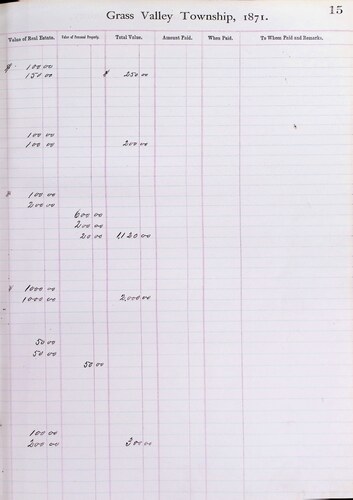 15
Grass Valley Township, 1871.
Value of Real Estate. Value of Personal Property. Total Value. Amount Paid. When Paid. To Whom Paid and Remarks.
$ 100 00
150 00 $ 250 00
100 00
100 00 200 00
$ 100 00
200 00
600 00
200 00
20 00 1,120 00
$ 1000 00
1000 00 2,000 00
50 00
50 00
50 00
100 00
200 00 300 00